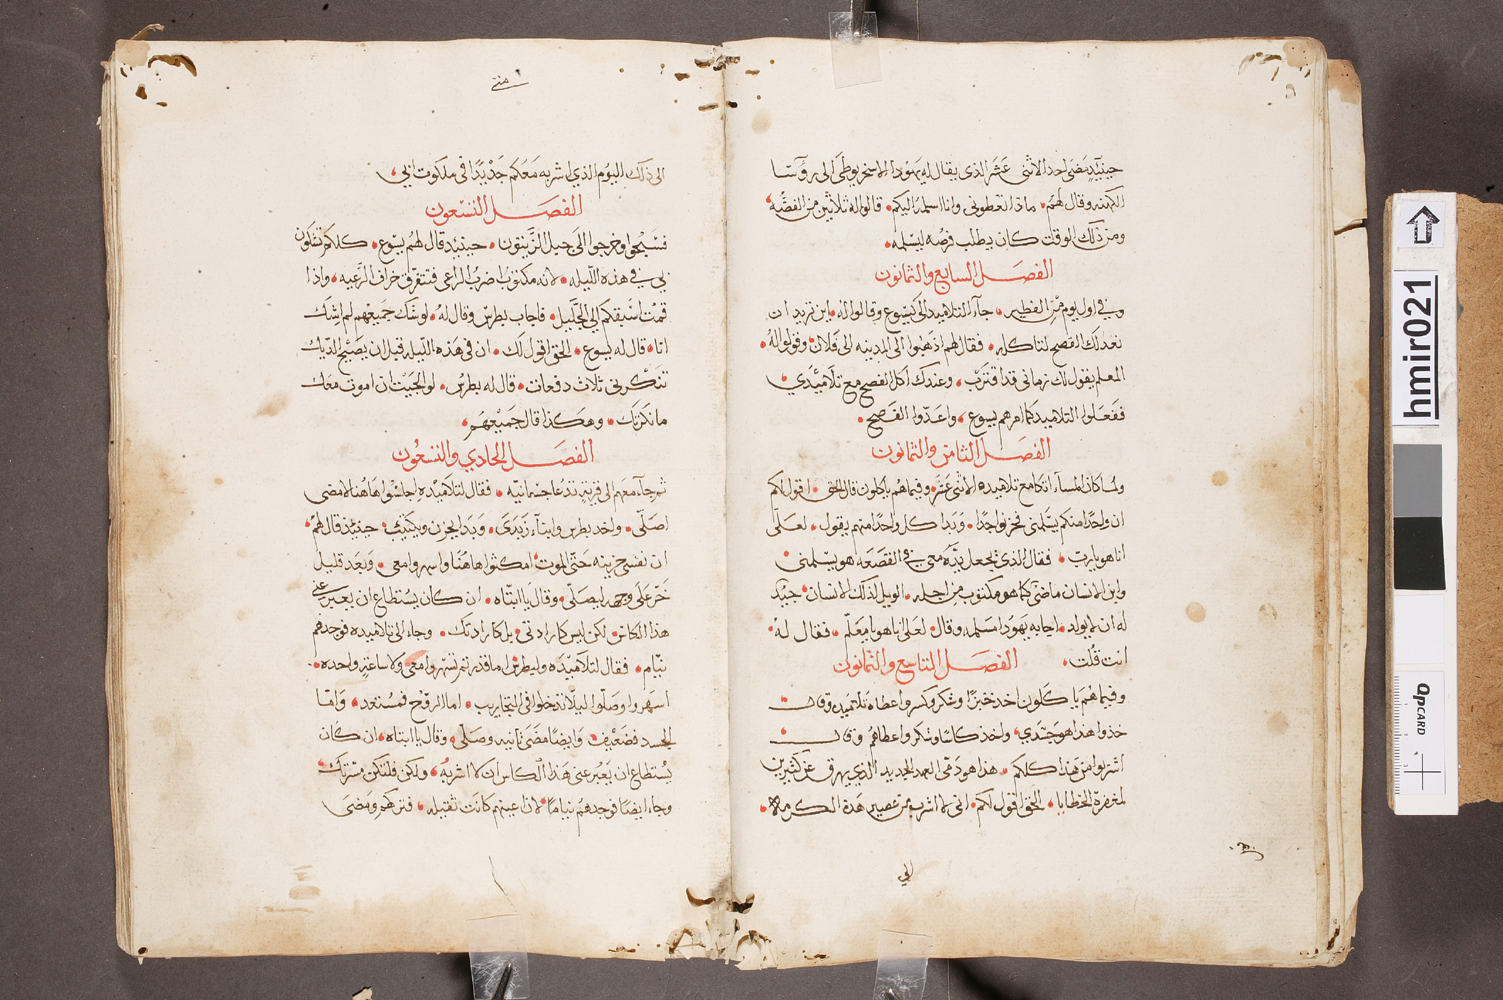 حينئيذ مضى احد الاثنى عشر الذى يقال له يهودا الاسخريوطى الى روسا
الكهنه وقال لهم ماذا تعطونى وانا اسلمه اليكم قالوا له ثلاثين من الفضه
ومن ذلك الوقت كان يطلب فرصه ليسلمه
الفصل السابع والثمانون
وفى اول يوم من الفطير جاء التلاميد الى يسوع وقالوا له اين تريد ان
نعد لك الفصح لتاكله فقال لهم اذهبوا الى المدينه الى فلان وقولوا له
المعلم يقول لك زمانى قد اقترب وعندك اكل الفصح مع تلاميذي
ففعلوا التلاميد كما امرهم يسوع واعدوا الفصح
الفصل الثامن والثمانون
ولما كان المسآء اتكا مع تلاميده الاثنى عشر وفيما هم ياكلون قال الحق اقول لكم
ان واحدا منكم يسلمنى فحزنوا جدا وبدا كل واحد منهم يقول لعلى
انا هو يارب فقال الذي يجعل يده معى فى القصعه هو يسلمنى
وابن الانسان ماضى كما هو مكتوب من اجله الويل لذلك الانسان جيد
له ان لا يولد اجابه يهودا مسلمه وقال لعلى انا هو يا معلم فقال له
انت قلت الفصل التاسع والثمانون
وفيما هم ياكلون اخد خبزا وشكر وكسر واعطا تلاميده وقال
خذوا هدا هو جسدي واخد كاسا وشكر واعطاهم وقال
اشربوا من هذا كلكم هذا هو دمى العهد الجديد الذي يهرق عن كثيرين
لمغفرة الخطايا الحق اقول لكم انى لا اشرب من عصير هذة الكرمه
الي
متى
الى ذلك اليوم الذي اشربه معكم جديدا فى ملكوت ابي
الفصل التسعون
فسبحوا وخرجوا الى جبل الزيتون حينئيد قال لهم يسوع كلكم تشكون
بي في هذه الليله لانه مكتوب اضرب الراعى فتتفرق خراف الرعيه واذا
قمت اسبقكم الى الجليل فاجاب بطرس وقال له لو شك جميعهم لم اشك
انا قال له يسوع الحق اقول لك ان فى هذه الليله قبل ان يصيح الديك
تنكرنى ثلاث دفعات قال له بطرس لو الجيت ان اموت معك
ما نكرتك وهكذا قال جميعهم
الفصل الحادي والتسعون
ثم جآء معهم الى قرية تدعا جسمانيه فقال لتلاميده اجلسوا هاهنا لامضى
اصلى واخد بطرس وابنآء زبدى وبدا يحزن ويكتيب حينئذ قال لهم
ان نفسى حزينه حتى الموت امكثوا هاهنا واسهروا معى وبعد قليل
خر على وجهه ليصلى وقال يا ابتاه ان كان يستطاع ان يعبر عنى
هذا الكاس لكن ليس كارادتى بل كارادتك وجاء الى تلاميده فوجدهم
نيام فقال لتلاميده ولبطرس اما قدرتم تسهروا معى ولا ساعة واحده
اسهروا وصلوا ليلا تدخلوا فى التجاريب اما الروح فمستعد واما
الجسد فضعيف وايضا مضى ثانيه وصلى وقال يا ابتاه ان كان
يستطاع ان يعبر عنى هذا الكاس ان لا اشربه ولكن فلتكن مسرتك
وجاء ايضا فوجدهم نياما لان اعينهم كانت ثقيله فتركهم ومضى
hmir021
QP CARD